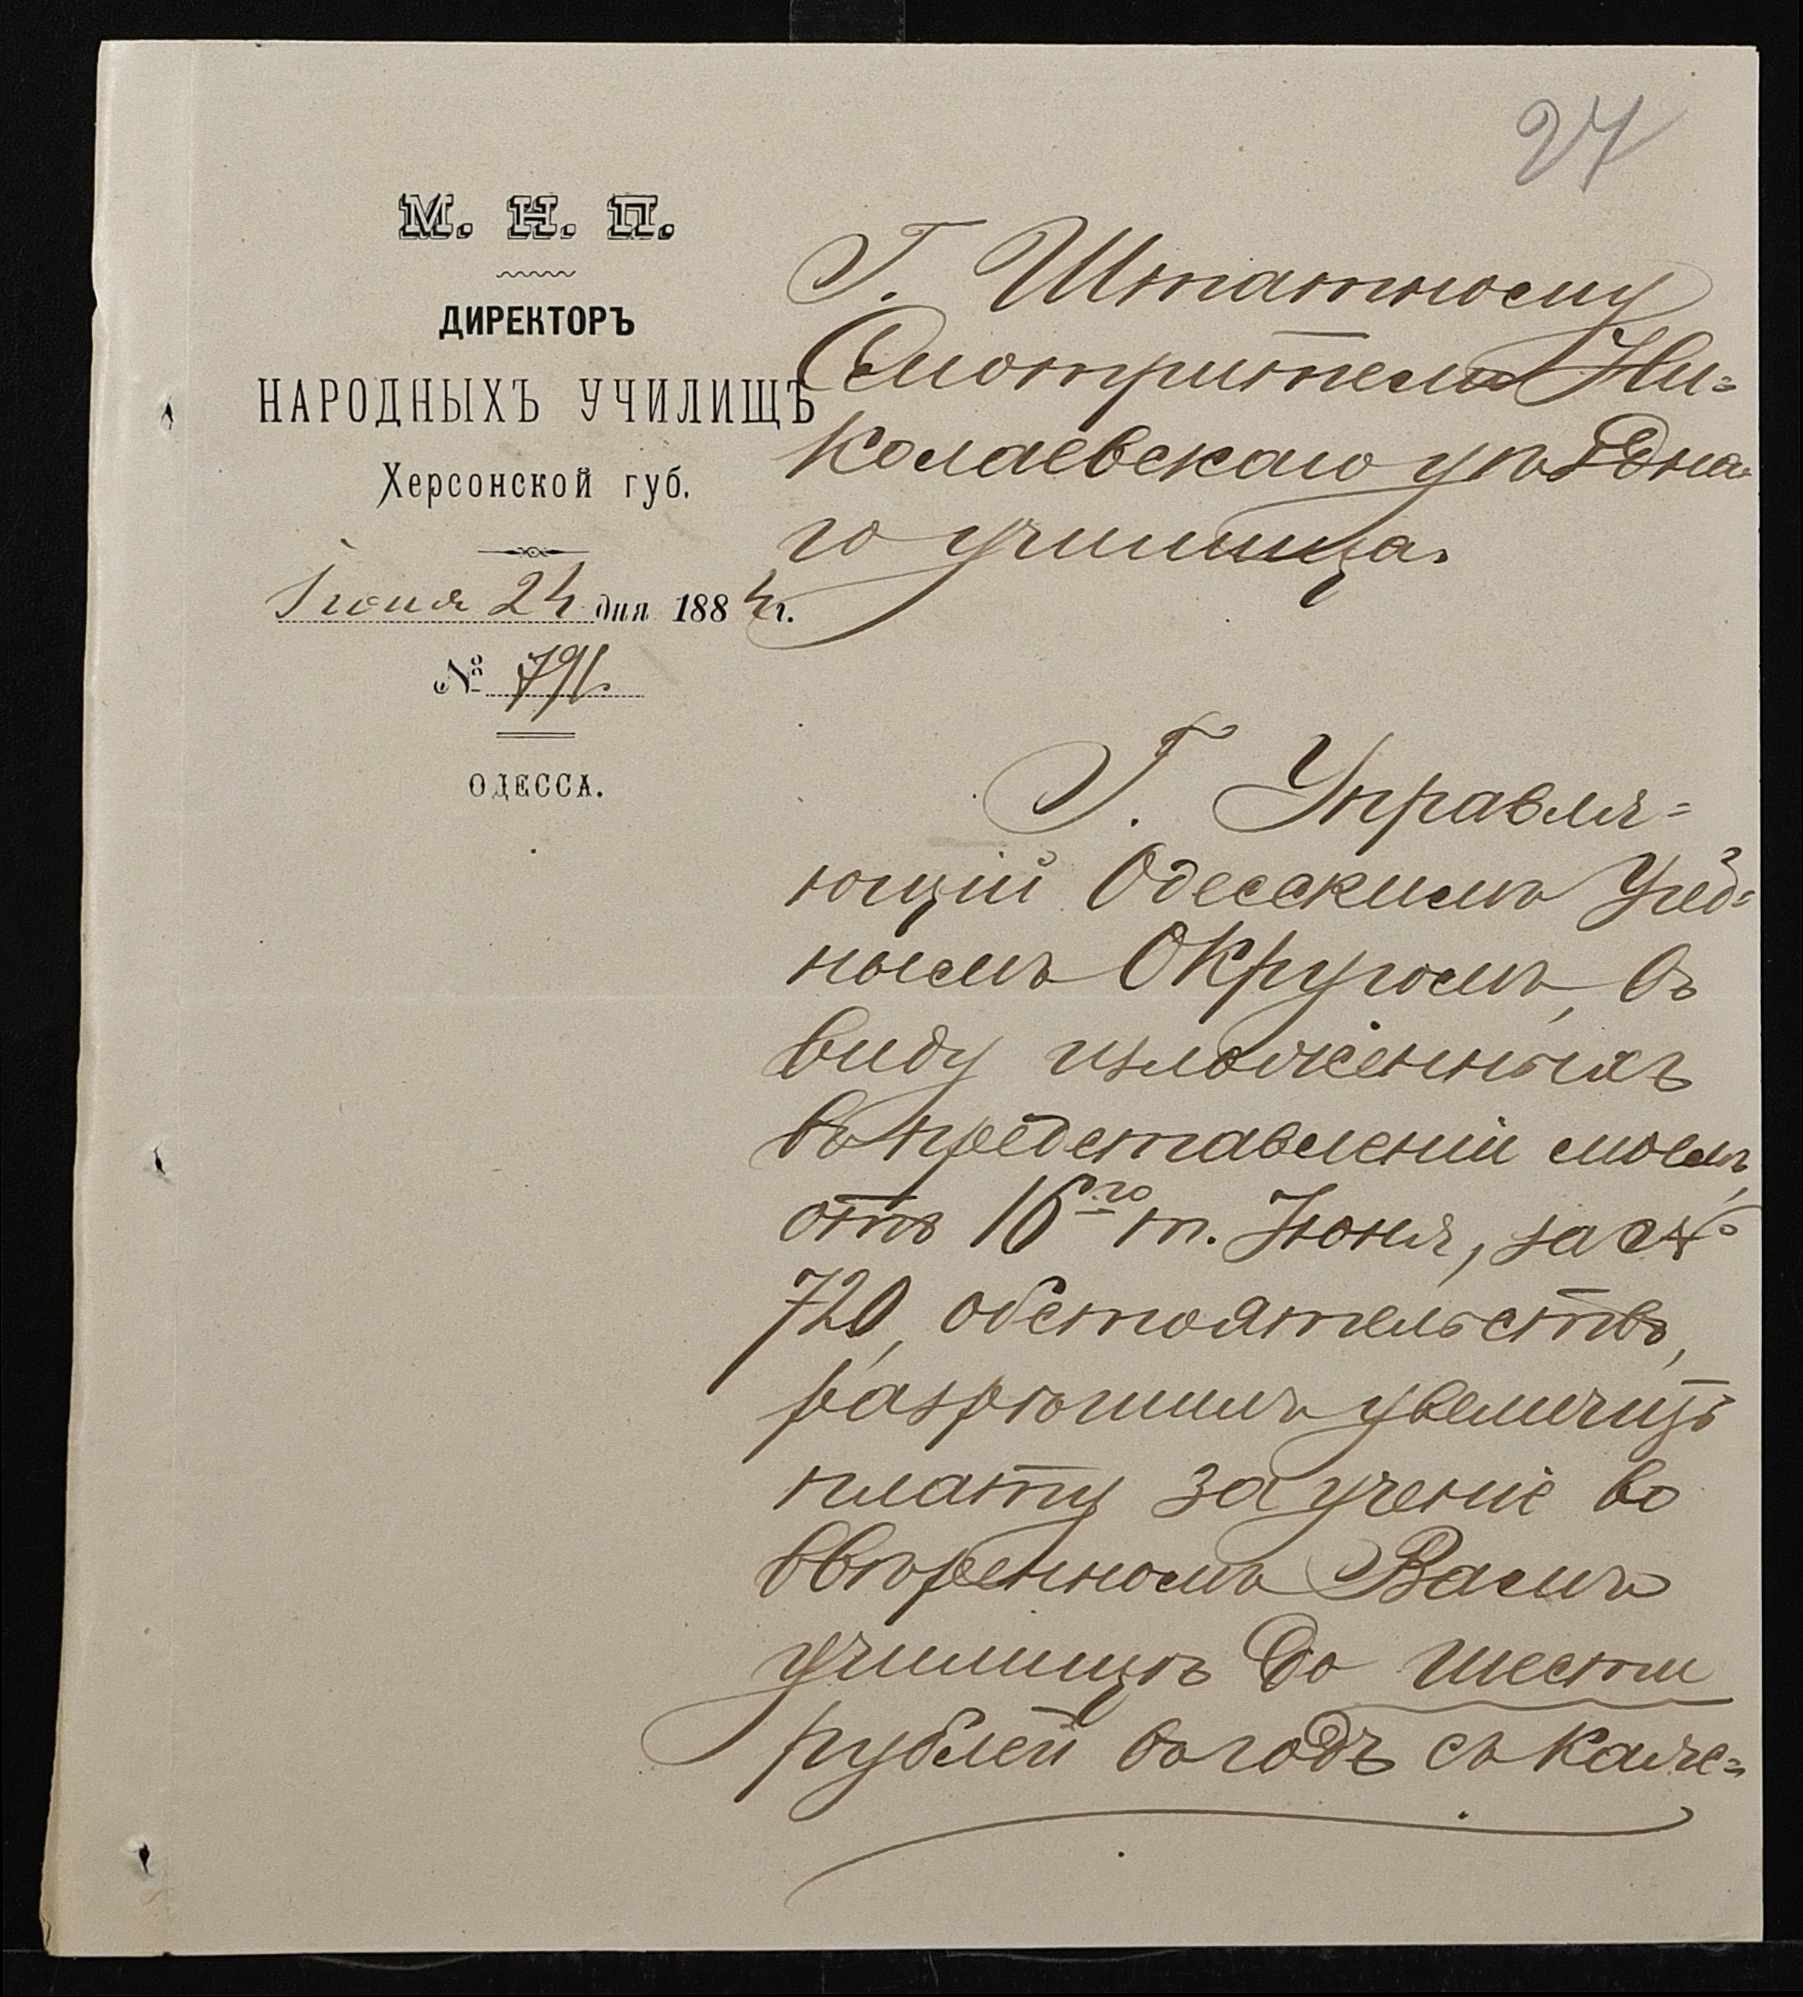 27
М. Н. П.
ДИРЕКТОРЪ
НАРОДНЫХЪ УЧИЛИЩЪ
Херсонской губ.
Іюня 24 дня 1884 г.
№ 791.
ОДЕССА.
Г. Штатному
Смотрителю Ни-
колаевскаго уѣздна-
го училища.
Г. Управля-
ющій Одесскимъ Учеб-
нымъ Округомъ, въ
виду изложенныхъ
въ представленіи моемъ,
отъ 16го т. Іюня, за №
720, обстоятельствъ,
разрѣшилъ увеличить
плату за ученіе во
ввѣренномъ Вамъ
училищѣ до шести
рублей въ годъ съ каж-